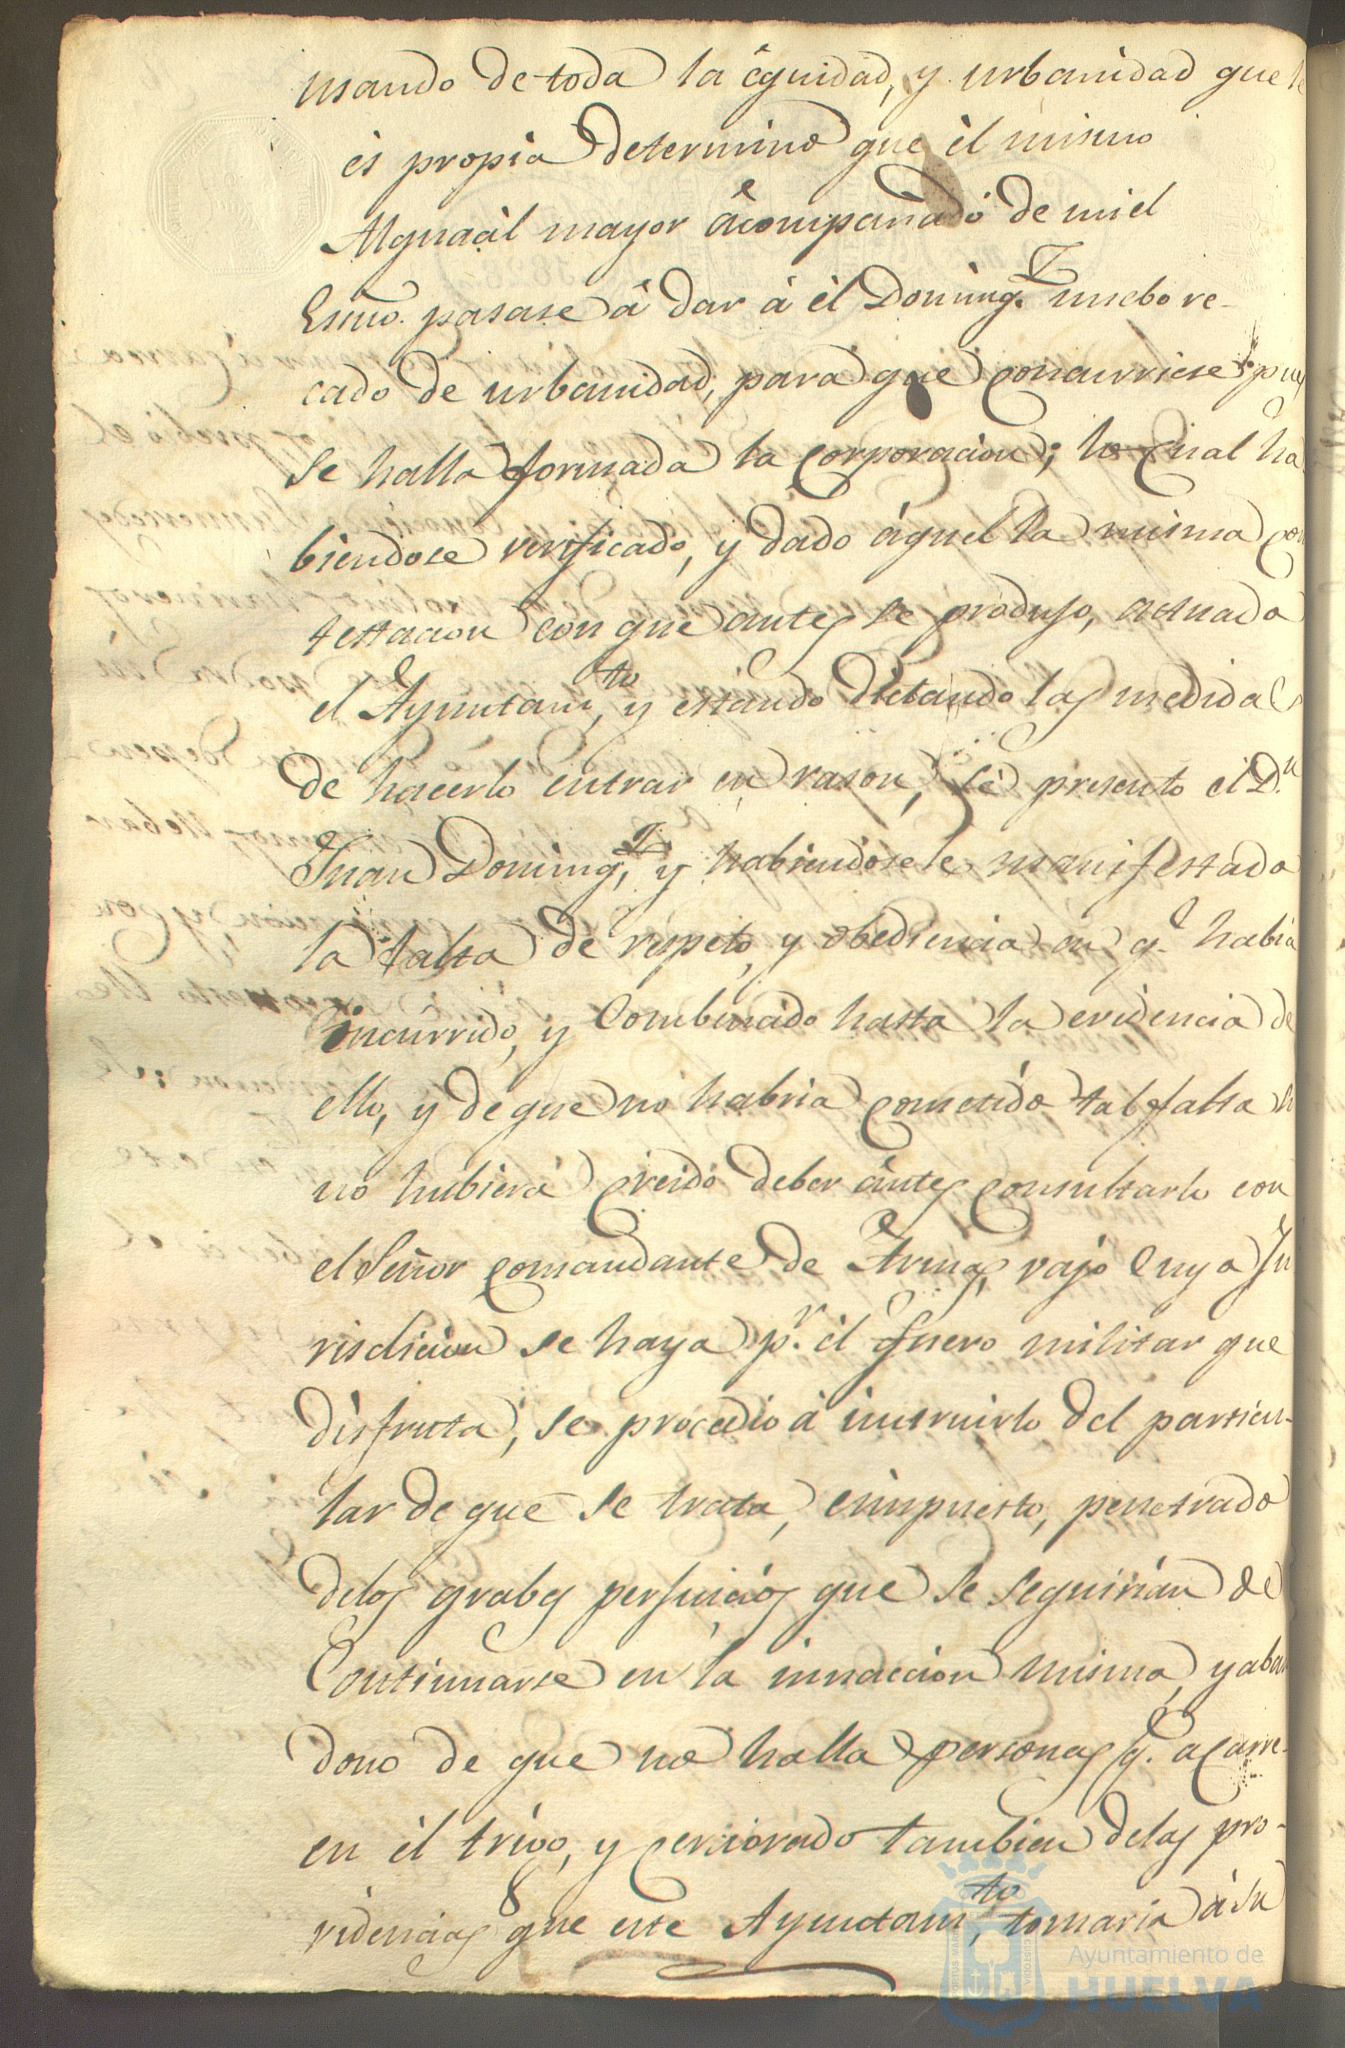 usando de toda la êquidad, y urbanidad que le
és propia determino que él mismo
Alguacil mayor âcompañado de mi el
Essno. pasase â dar á él Doming.z nuebo re-
cado de urbanidad, para que concurriese pues
se halla formada la corporacion; lo cual ha
biendose verificado, y dado áquel la misma con
testacion con que antes se produjo, actuado
el Ayuntam.to, y estando dictando las medidas
de hacerlo entrar en rason, se presento el D.n
Juan Doming.z, y habiendosele manifestado
la falta de respeto, y obediencia en q.e habia
incurrido, y combencido hasta la evidencia de
ello, y de que no habria cometido tal falta si
no hubiera creido deber ântes consultarlo con
el Señor comandante de Armas, vajo cuya Ju
risdicion se haya p.r él fuero militar que
disfruta, se procedio á instruirlo del particu-
lar de que se trata, eimpuesto, penetrado
delos grabes perjuicios que se seguirian de
Continuarse en la innaccion misma, y aban
dono de que no halla personas q.e acarre-
en él trigo, y cerciorado tambien delas pro-
videncias que este Ayuntam.to, tomaria á su
Ayuntamiento de
HUELVA